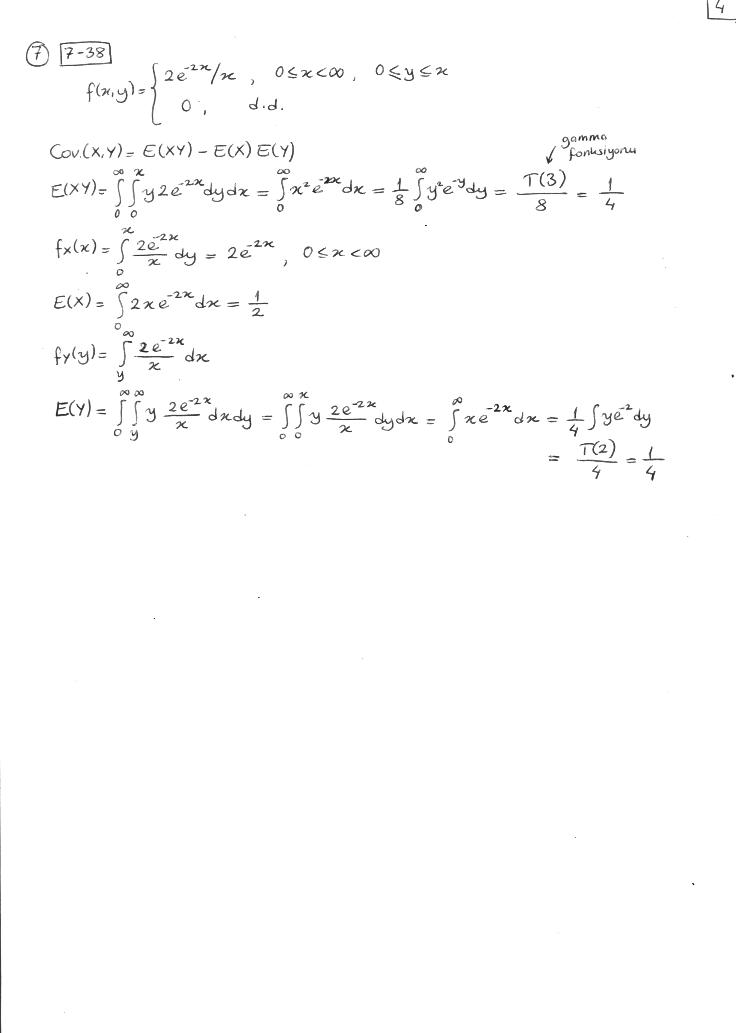 4
⑦ 7-38
f(x,y) = { 2e^{-2x}/x , 0≤x<∞, 0≤y≤x
0, d.d.
Cov(X,Y) = E(XY) - E(X) E(Y)
gamma
fonksiyonu
E(XY) = ∫_0^∞ ∫_0^x y2e^{-2x} dydx = ∫_0^∞ x²e^{-2x} dx = 1/8 ∫_0^∞ y²e^{-y} dy = Γ(3)/8 = 1/4
fx(x) = ∫_0^x 2e^{-2x}/x dy = 2e^{-2x} , 0≤x<∞
E(X) = ∫_0^∞ 2xe^{-2x} dx = 1/2
fy(y) = ∫_y^∞ 2e^{-2x}/x dx
E(Y) = ∫_0^∞ ∫_y^∞ y 2e^{-2x}/x dxdy = ∫_0^∞ ∫_0^x y 2e^{-2x}/x dydx = ∫_0^∞ xe^{-2x} dx = 1/4 ∫ye^{-2} dy
= Γ(2)/4 = 1/4